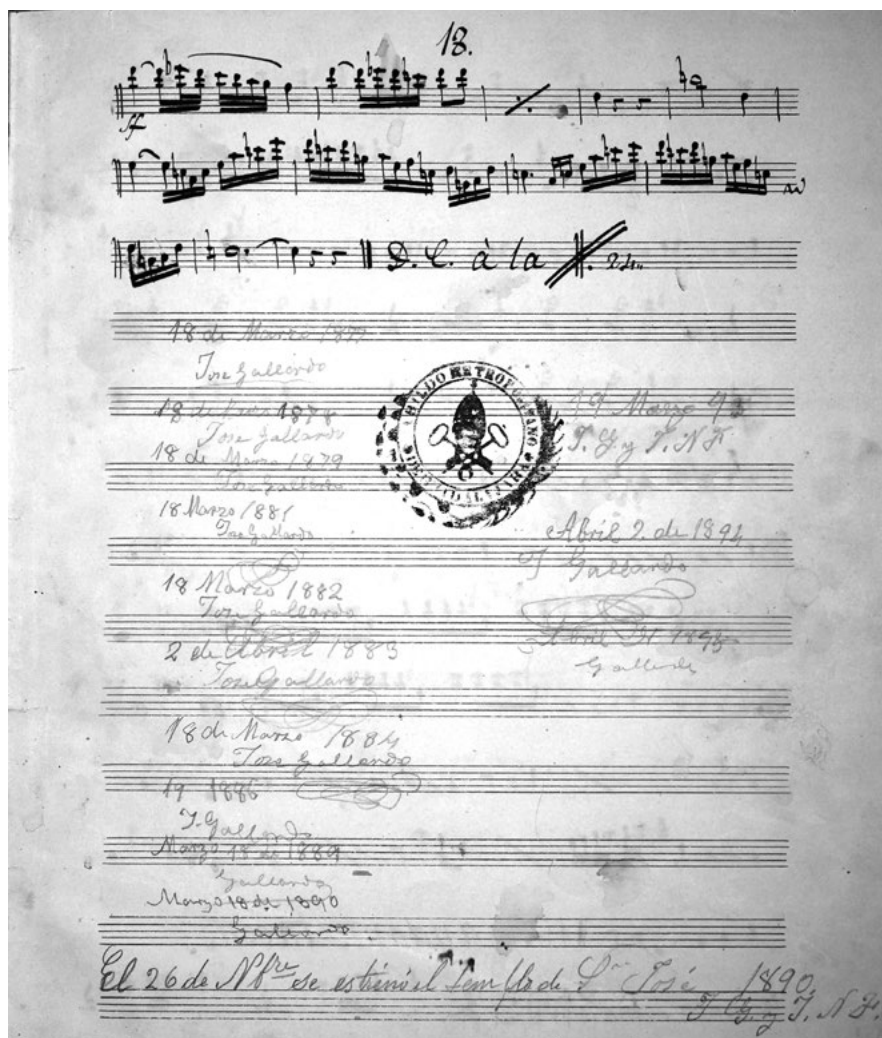 18.
ff
D. C. à la
18 de Marzo 1877
Jose Gallardo
18 de 1878
Jose Gallardo
18 de Marzo 1879
Jose Gallardo
18 Marzo 1881
Jose Gallardo
18 Marzo 1882
Jose Gallardo
2 de Abril 1883
Jose Gallardo
18 de Marzo 1884
Jose Gallardo
19 1886
J. Gallardo
Marzo 18 de 1889
Gallardo
Marzo 18 de 1890
Gallardo
CABILDO METROPOLITANO
DE GUADALAJARA
19 Marzo 93
J. G. y J. N F.
Abril 2 de 1894
J Gallardo
Abril 1895
Gallardo
El 26 de Nbre se estrenó el Templo de Sn José 1890.
J G. y J. N F.